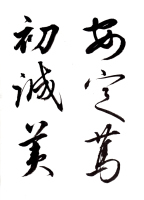 安定篤
初誠美